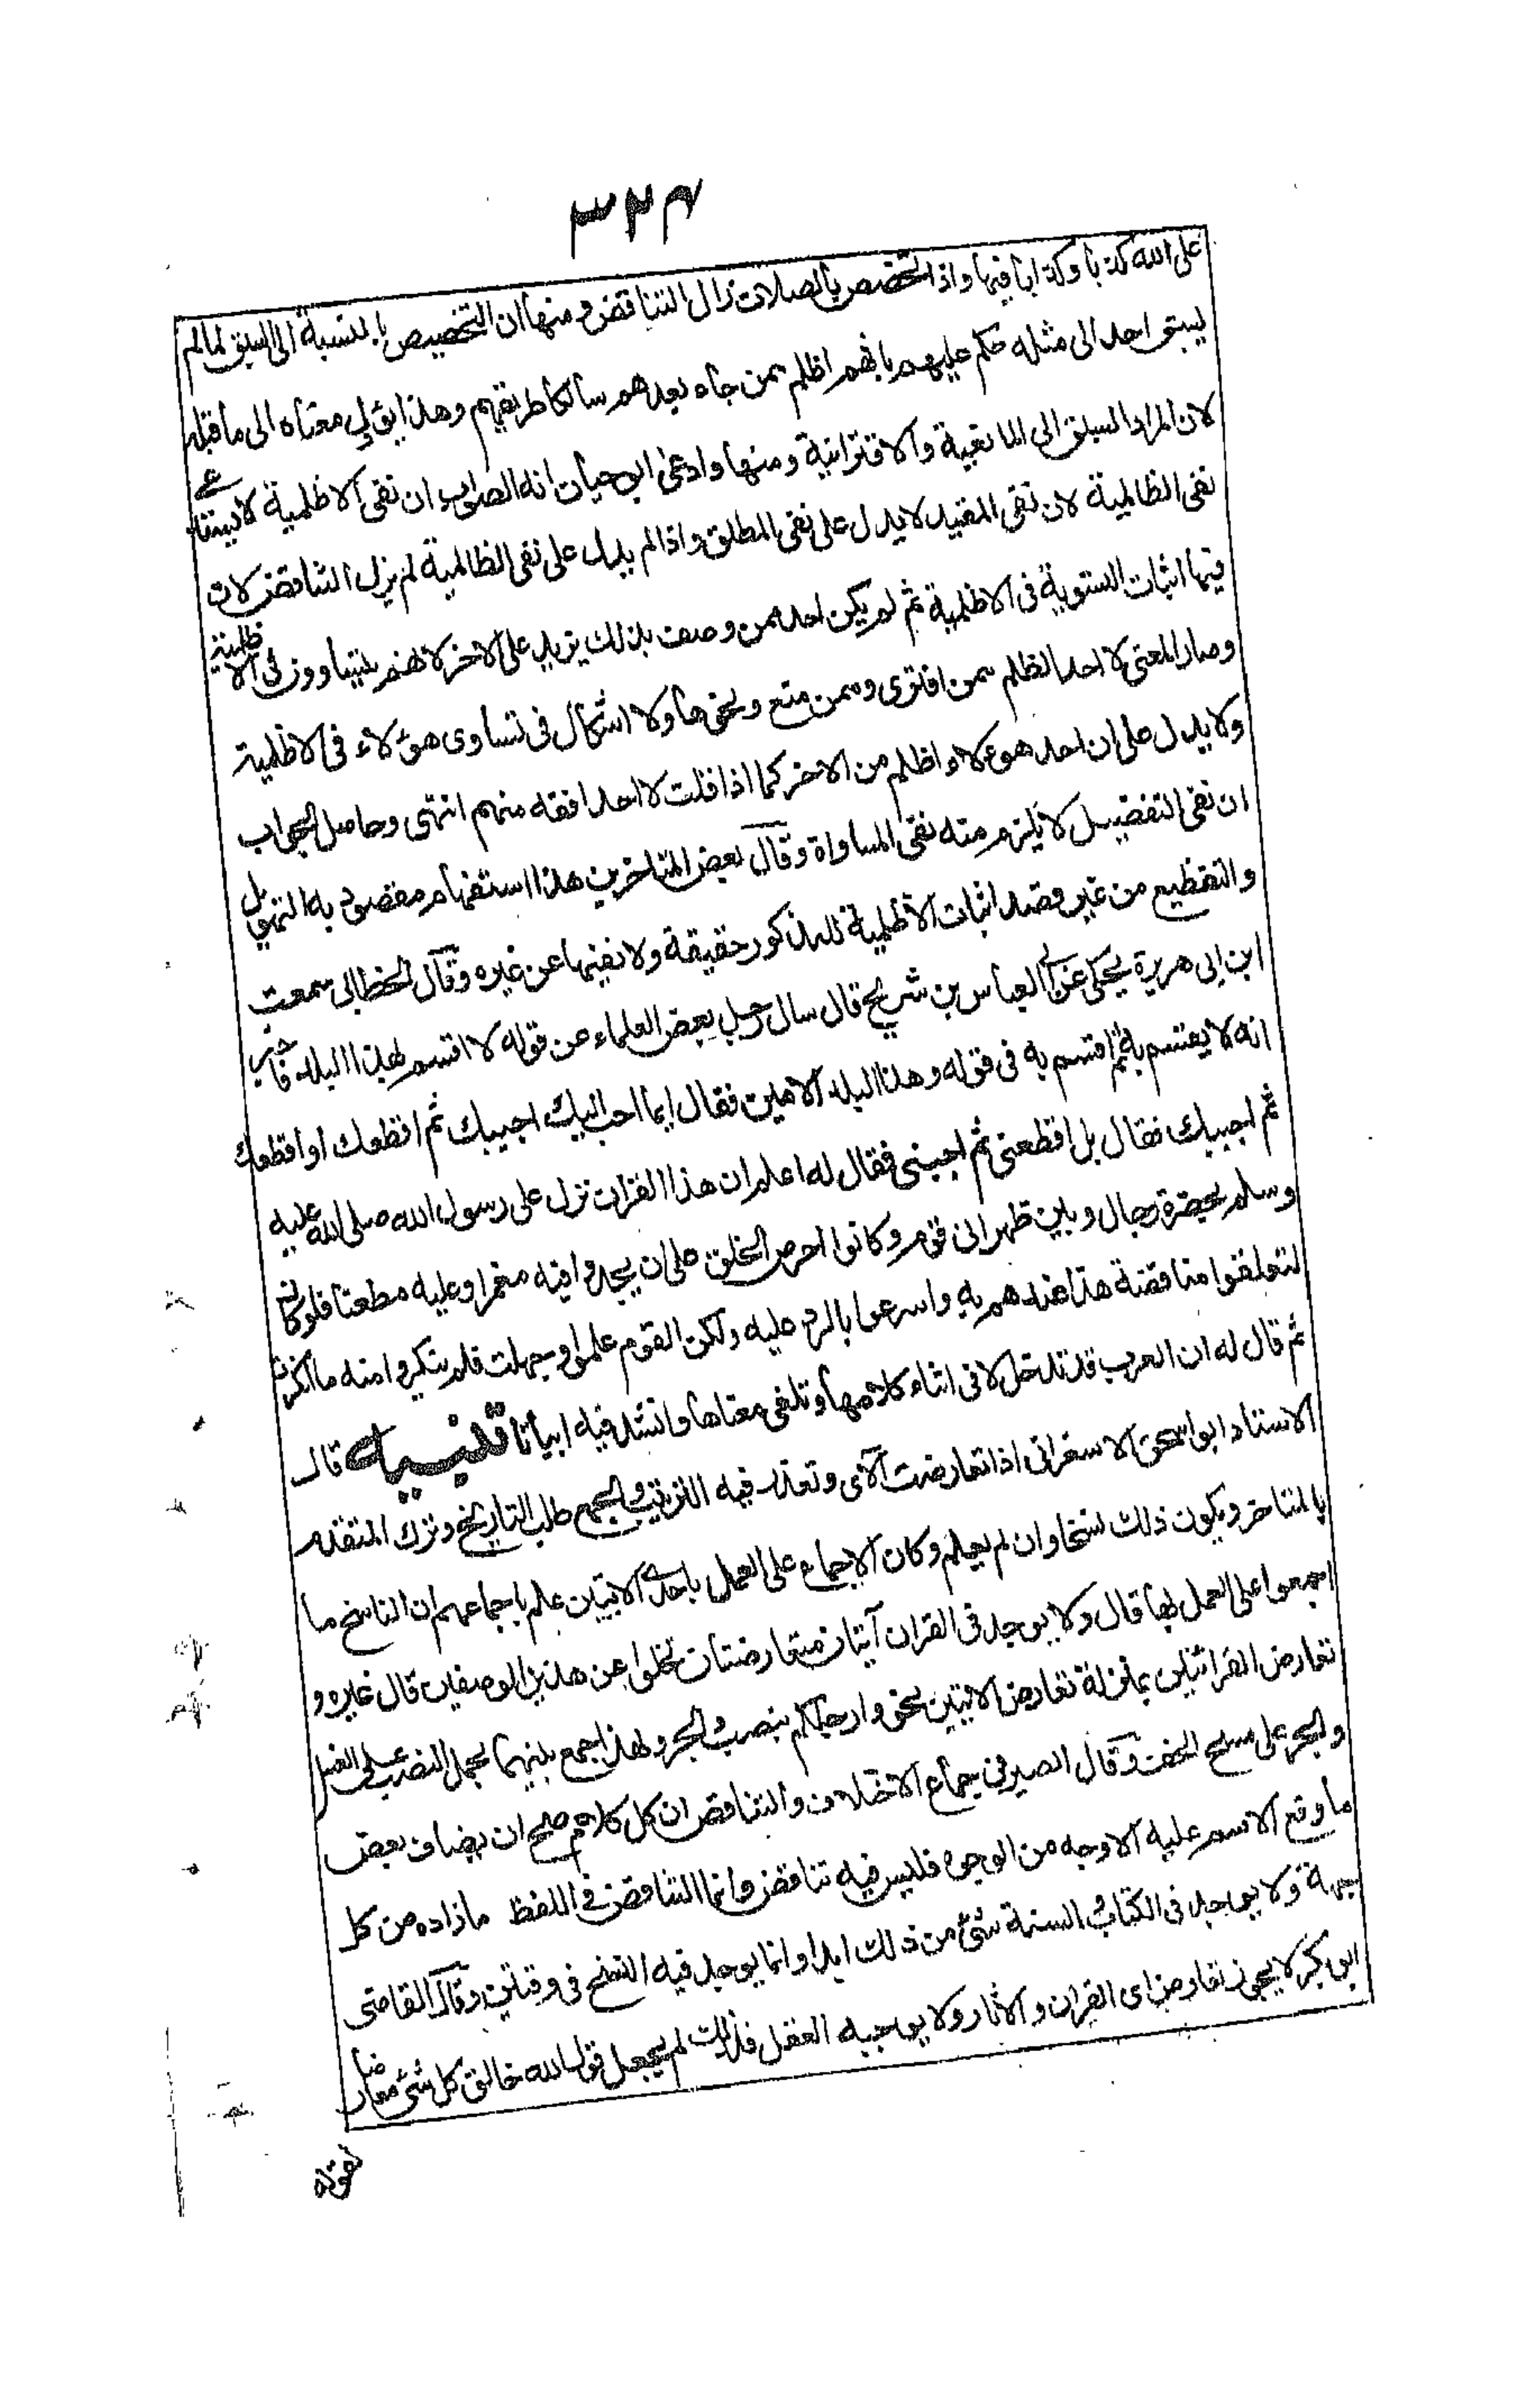 ٣٢٤
على الله كذبا وكذا باقيها واذا تخصص بالصلات زال التناقض ومنها ان التخصيص بالنسبة الى السبق لما لم
يسبق احد الى مثله حكم عليهم بانهم اظلم ممن جاء بعدهم سالكا طريقهم وهذا يؤل معناه الى ما قبله
لان المراد السبق الى المانعية والافترائية ومنها وادعى ابو حيان انه الصواب ان نفى الاظلمية لا يستدعى
نفى الظالمية لان نفى المقيد لا يدل على نفى المطلق واذا لم يدل على نفى الظالمية لم يزل التناقض لان
فيها اثبات التسوية فى الاظلمية ثم لم يكن احد ممن وصف بذلك يزيد على الاخر لانهم يتساوون فى الاظلمية
وصار المعنى لا احد اظلم ممن افترى وممن منع ونحوها ولا اشكال فى تساوى هؤلاء فى الاظلمية
ولا يدل على ان احد هؤلاء اظلم من الاخر كما اذا قلت لا احد افقه منهم انتهى وحاصل الجواب
ان نفى التفضيل لا يلزم منه نفى المساواة وقال بعض المتاخرين هذا استفهام مقصود به التهويل
والتفظيع من غير قصد اثبات الاظلمية للمذكور حقيقة ولا نفيها عن غيره وقال الخطابى سمعت
ابن ابى هريرة يحكى عن ابى العباس بن شريح قال سال رجل بعض العلماء عن قوله لا اقسم بهذا البلد فاخبر
انه لا يقسم به ثم اقسم به فى قوله وهذا البلد الامين فقال ايما احب اليك اجيبك ثم اقطعك او اقطعك
ثم اجيبك فقال بل اقطعنى ثم اجبنى فقال له اعلم ان هذا القران نزل على رسول الله صلى الله عليه
وسلم بحضرة رجال وبين ظهرانى قوم وكانوا احرص الخلق على ان يجدوا فيه مغمرا وعليه مطعنا فلو كان
لتعلقوا مناقضة هذا عندهم به واسرعوا بالرد عليه ولكن القوم علموا وجهلت فلم ينكروا منه ما انكرت
ثم قال له ان العرب قد تدخل لا فى اثناء كلامها وتلغى معناها وانشد فيه ابياتا تنبيه قال
الاستاد ابو اسحق الاسفرانى اذا تعارضت الآى وتعذر فيه الترتيب والجمع طلب التاريخ وترك المتقدم
بالمتاخر ويكون ذلك نسخا وان لم يعلم وكان الاجماع على العمل باحدى الايتين علم باجماعهم ان الناسخ ما
اجمعوا على العمل بها قال ولا يوجد فى القران آيتان متعارضتان تخلوا عن هذين الوصفين قال غيره و
تعارض القرائتين بمنزلة تعارض الايتين نحو وارجلكم بنصب والجر ولهذا جمع بينهما بحمل النصب على الغسل
والجر على مسح الخف وقال الصيرفى جماع الاختلاف والتناقض ان كل كلام صلح ان يضاف بعض
ما وقع الاسم عليه الا وجه من الوجوه فليس فيه تناقض وانما التناقض فى اللفظ ما زاده من كل
جهة ولا يوجد فى الكتاب والسنة شئ من ذلك ابدا وانما يوجد فيه النسخ فى وقتين وقال القاضى
ابو بكر لا يجوز تعارض اى القران والاثار ولا يوجبه العقل فلذلك لم يجعل قول الله خالق كل شئ معارضا
لقوله